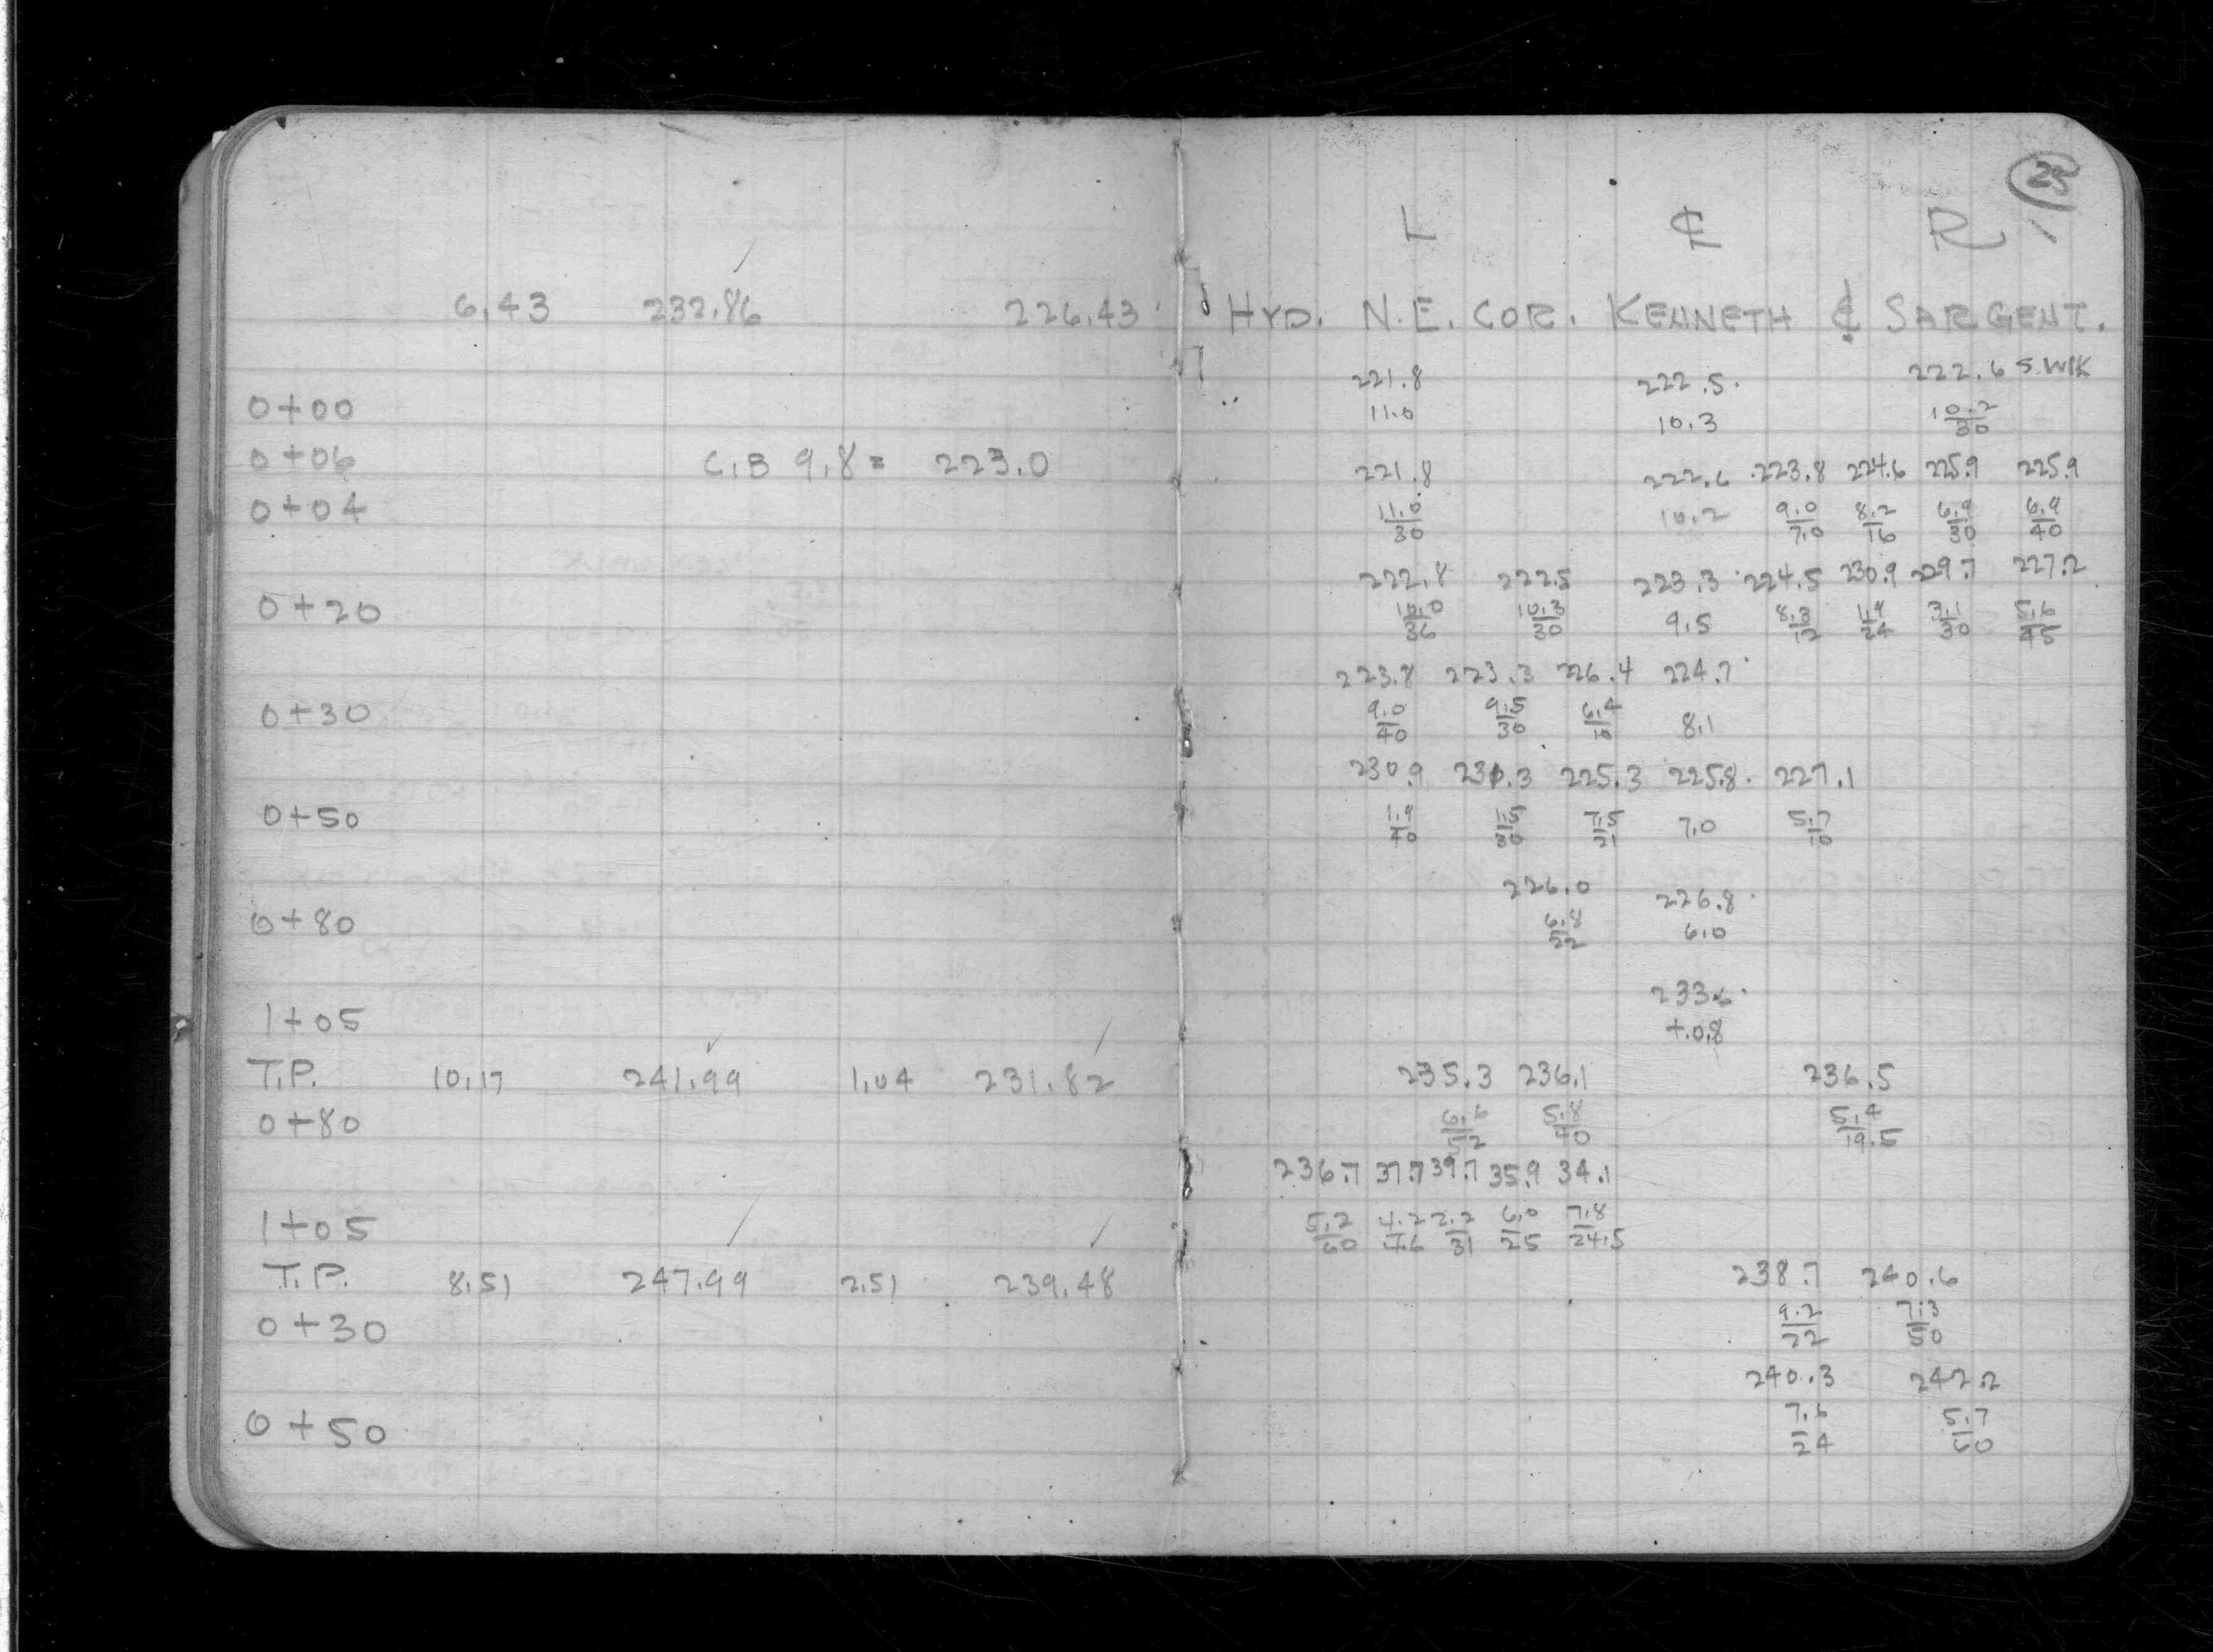 23
L ℄ R
6.43 232.86 226.43 HYD. N.E. COR. KENNETH & SARGENT.
221.8 222.5 222.6 S.WLK
0+00 11.0 10.3 10.2/30
0+06 C.B 9.8 = 223.0 221.8 222.6 223.8 224.6 225.9 225.9
0+04 11.0/30 10.2 9.0/7.0 8.2/16 6.9/30 6.9/40
222.8 222.5 223.3 224.5 230.9 229.7 227.2
0+20 10.0/36 10.3/30 9.5 8.3/12 1.9/24 3.1/30 5.6/45
223.8 223.3 226.4 224.7
0+30 9.0/40 9.5/30 6.4/10 8.1
230.9 231.3 225.3 225.8 227.1
0+50 1.9/40 1.5/30 7.5/21 7.0 5.7/10
226.0 226.8
0+80 6.8/22 6.0
233.6
1+05 +.0.8
T.P. 10.17 241.99 1.04 231.82 235.3 236.1 236.5
0+80 5.8/40 5.4/19.5
236.7 37.7 39.7 35.9 34.1
1+05 5.2/60 4.2/46 2.2/31 6.0/25 7.8/24.5
T.P. 8.51 247.99 2.51 239.48 238.7 240.6
0+30 9.2/22 7.3/50
240.3 242.2
0+50 7.6/24 5.7/60